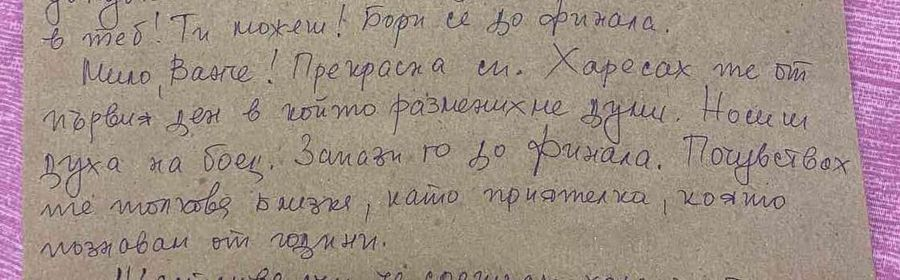 в теб! Ти можеш! Бори се до финала.
Мило, Ванче! Прекрасна си. Харесах те от
първия ден в който разменихме думи. Носиш
духа на боец. Запази го до финала. Почувствах
те толкова близка, като приятелка, която
познавам от години.